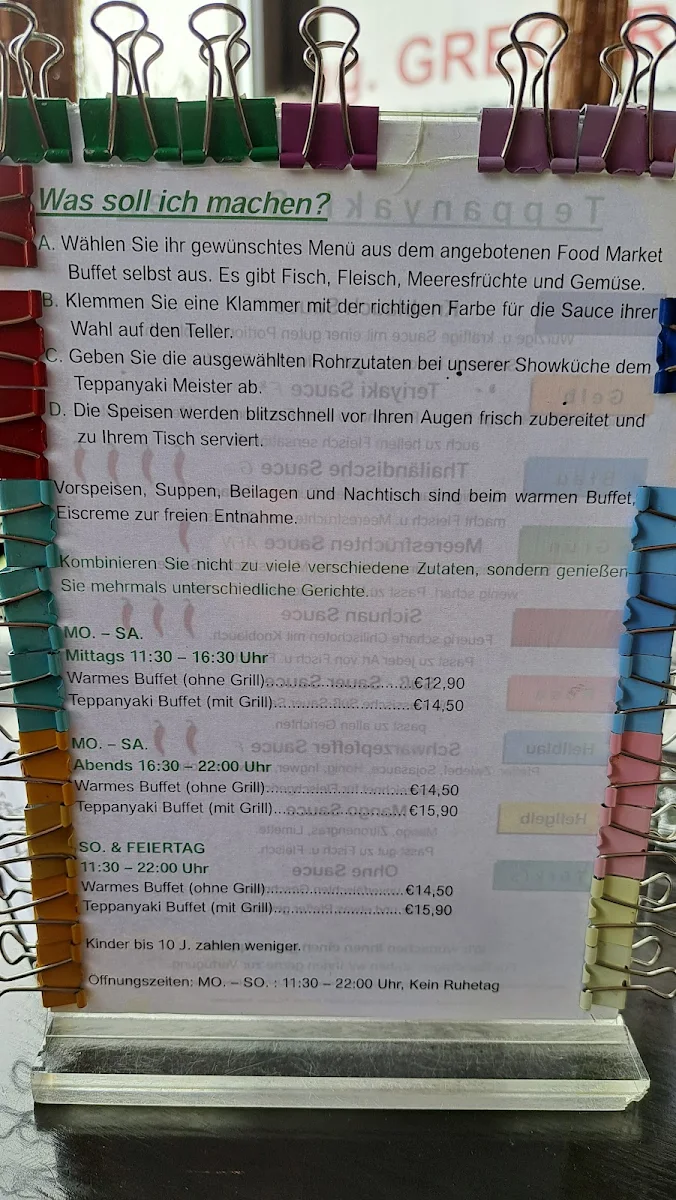 Was soll ich machen?
A. Wählen Sie ihr gewünschtes Menü aus dem angebotenen Food Market
Buffet selbst aus. Es gibt Fisch, Fleisch, Meeresfrüchte und Gemüse.
B. Klemmen Sie eine Klammer mit der richtigen Farbe für die Sauce ihrer
Wahl auf den Teller.
C. Geben Sie die ausgewählten Rohrzutaten bei unserer Showküche dem
Teppanyaki Meister ab.
D. Die Speisen werden blitzschnell vor Ihren Augen frisch zubereitet und
zu Ihrem Tisch serviert.
Vorspeisen, Suppen, Beilagen und Nachtisch sind beim warmen Buffet,
Eiscreme zur freien Entnahme.
Kombinieren Sie nicht zu viele verschiedene Zutaten, sondern genießen
Sie mehrmals unterschiedliche Gerichte.
MO. – SA.
Mittags 11:30 – 16:30 Uhr
Warmes Buffet (ohne Grill)..............................€12,90
Teppanyaki Buffet (mit Grill)............................€14,50
MO. – SA.
Abends 16:30 – 22:00 Uhr
Warmes Buffet (ohne Grill)..............................€14,50
Teppanyaki Buffet (mit Grill)............................€15,90
SO. & FEIERTAG
11:30 – 22:00 Uhr
Warmes Buffet (ohne Grill)..............................€14,50
Teppanyaki Buffet (mit Grill)............................€15,90
Kinder bis 10 J. zahlen weniger.
Öffnungszeiten: MO. – SO. : 11:30 – 22:00 Uhr, Kein Ruhetag